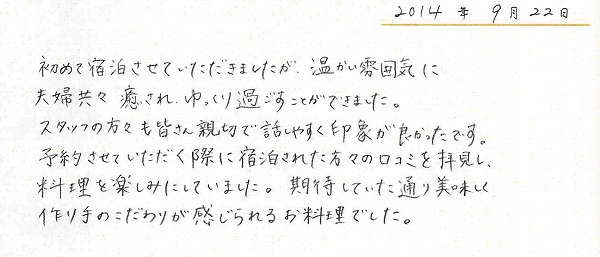 2014年 9月22日
初めて宿泊させていただきましたが、温かい雰囲気に
夫婦共々 癒され、ゆっくり過ごすことができました。
スタッフの方々も皆さん親切で話しやすく印象が良かったです。
予約させていただく際に宿泊された方々の口コミを拝見し、
料理を楽しみにしていました。期待していた通り美味しく
作り手のこだわりが感じられるお料理でした。